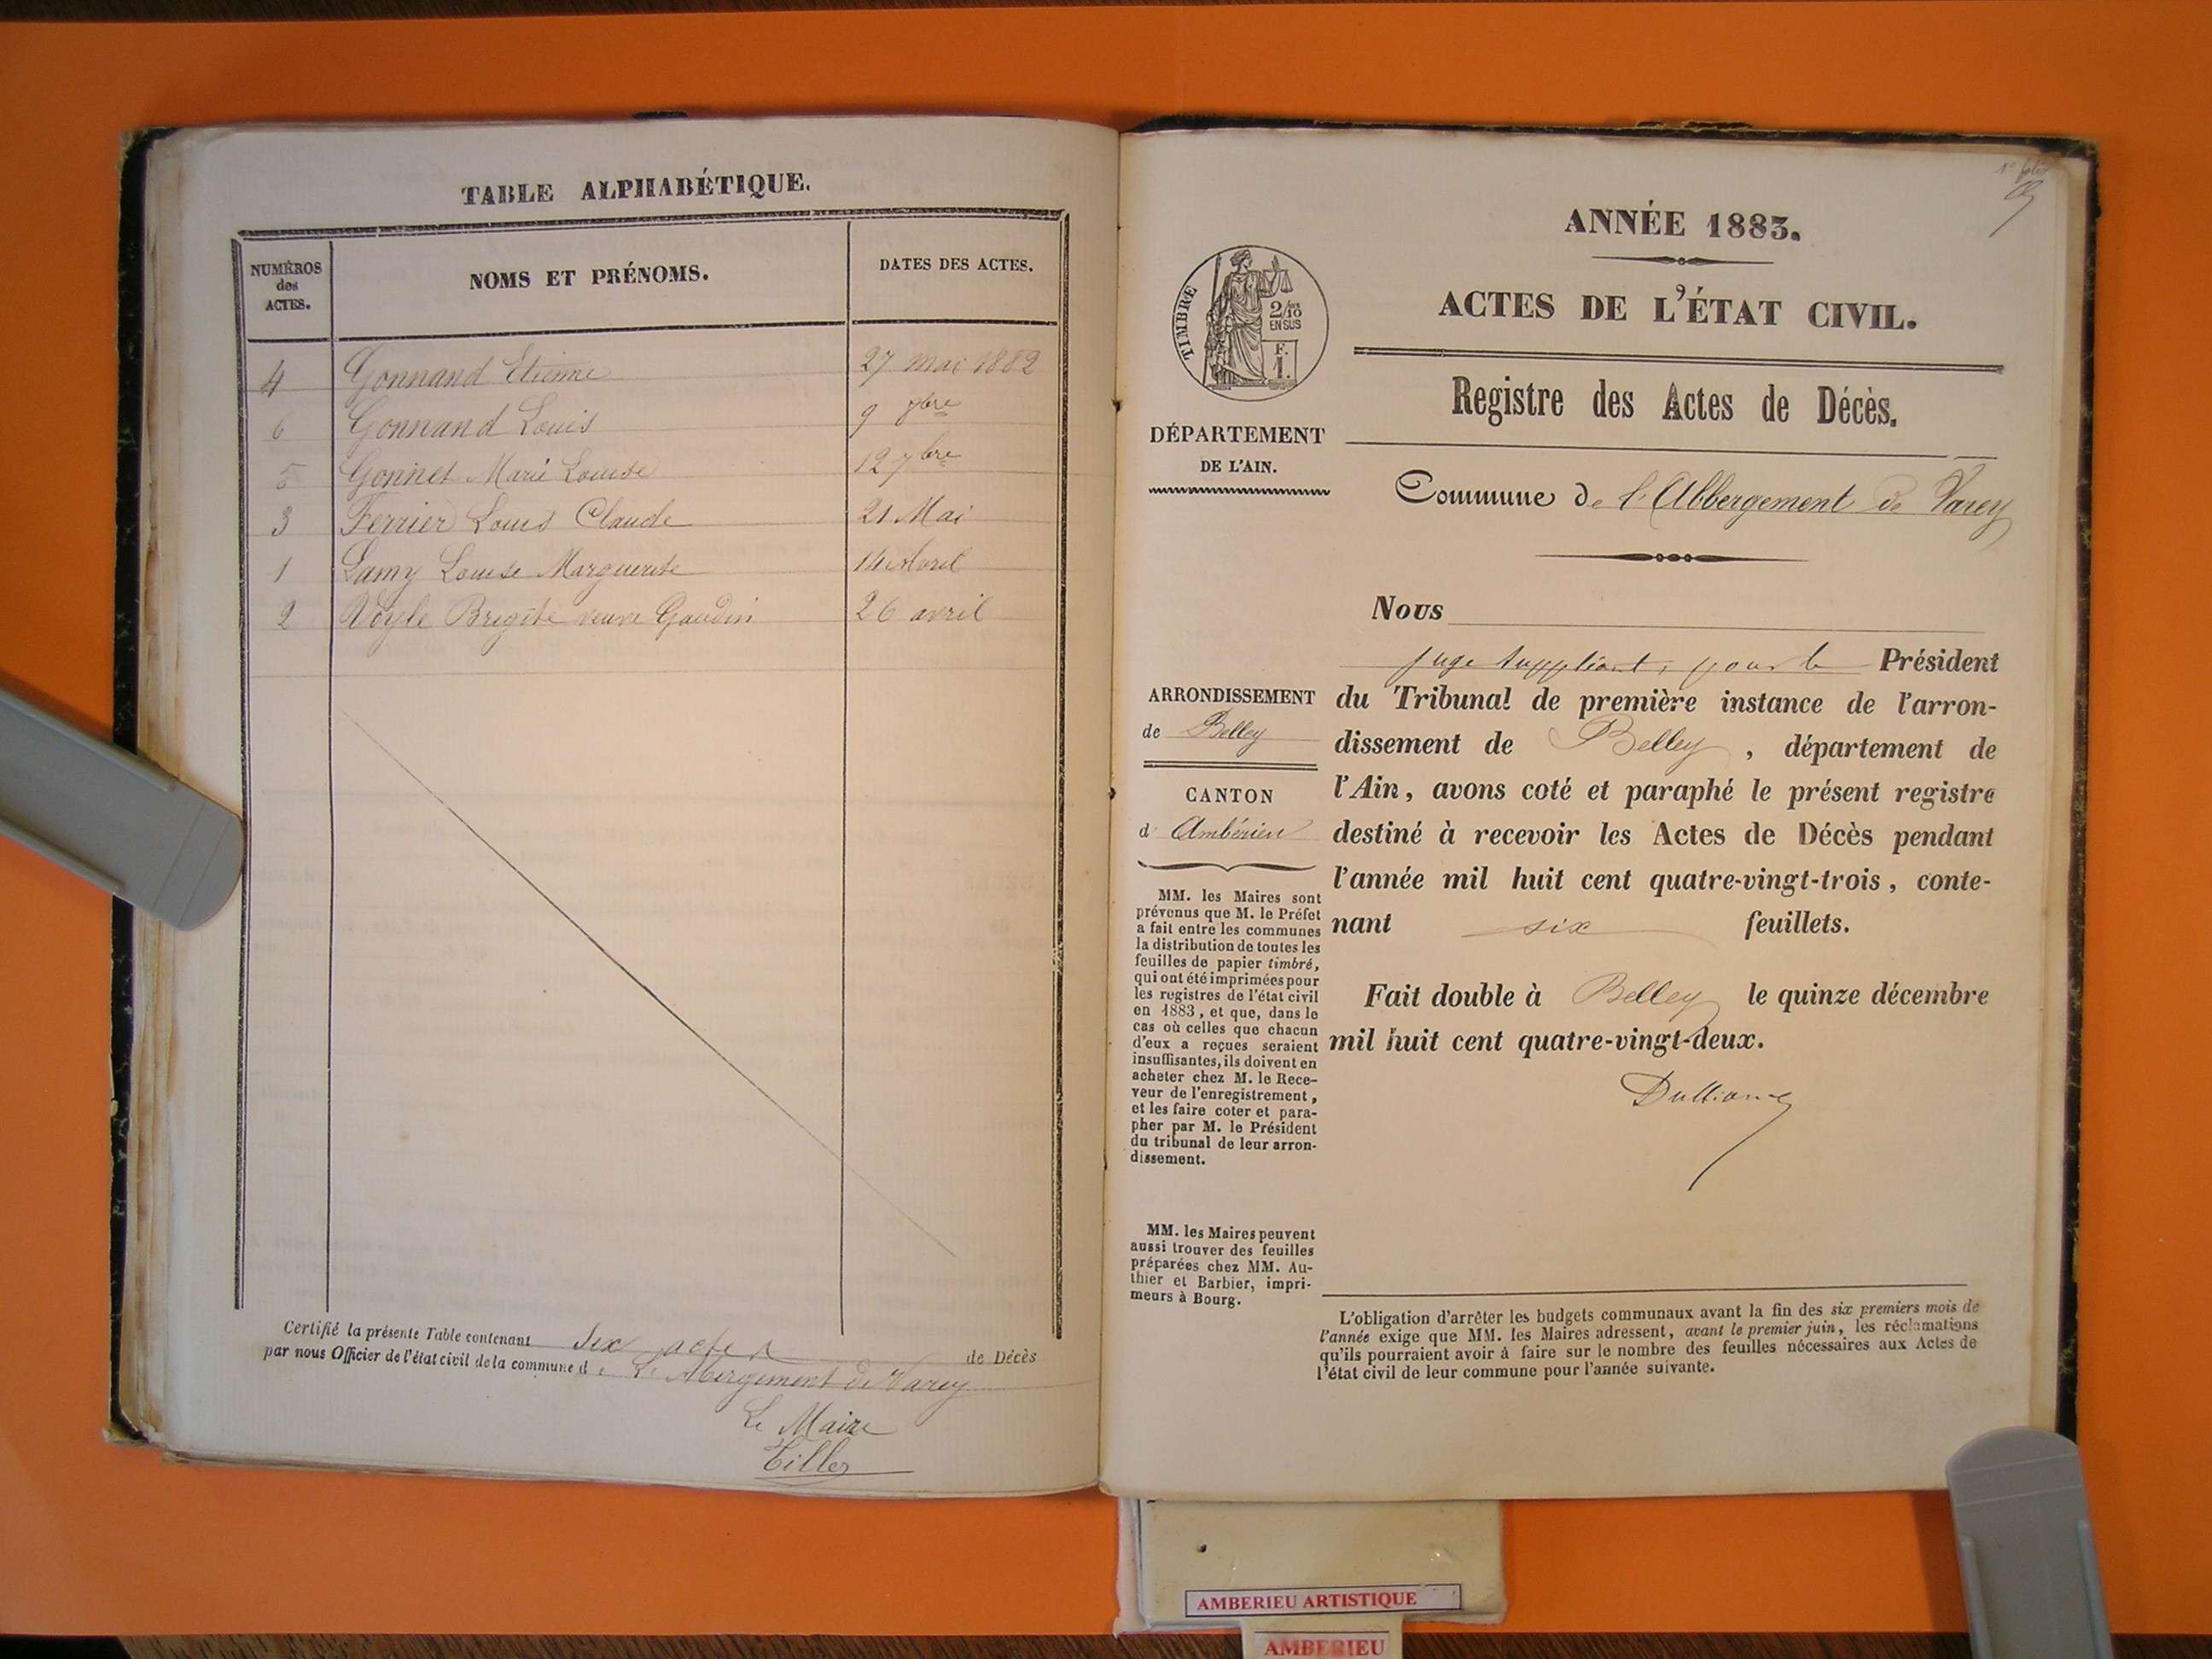 TABLE ALPHABÉTIQUE.
NUMÉROS
des
ACTES.
NOMS ET PRÉNOMS.
DATES DES ACTES.
4 Gonnand Etienne 27 mai 1882
6 Gonnand Louis 9 8bre
5 Gonnet Marie Louise 12 7bre
3 Ferrier Louis Claude 21 Mai
1 Lamy Louise Marguerite 14 Avril
2 Voyle Brigite veuve Gaudin 26 avril
Certifié la présente Table contenant Six actes de Décès
par nous Officier de l'état civil de la commune de L'Abergement de Varey
Le Maire
Tiller
1er folio
ANNÉE 1883.
ACTES DE L'ÉTAT CIVIL.
Registre des Actes de Décès.
Commune de l'Abbergement de Varey
TIMBRE
2/10
EN SUS
F.
1.
DÉPARTEMENT
DE L'AIN.
ARRONDISSEMENT
de Belley
CANTON
d' Ambérieu
MM. les Maires sont
prévenus que M. le Préfet
a fait entre les communes
la distribution de toutes les
feuilles de papier timbré,
qui ont été imprimées pour
les registres de l'état civil
en 1883, et que, dans le
cas où celles que chacun
d'eux a reçues seraient
insuffisantes, ils doivent en
acheter chez M. le Rece-
veur de l'enregistrement,
et les faire coter et para-
pher par M. le Président
du tribunal de leur arron-
dissement.
MM. les Maires peuvent
aussi trouver des feuilles
préparées chez MM. Au-
thier et Barbier, impri-
meurs à Bourg.
Nous
juge suppléant, pour le Président
du Tribunal de première instance de l'arron-
dissement de Belley, département de
l'Ain, avons coté et paraphé le présent registre
destiné à recevoir les Actes de Décès pendant
l'année mil huit cent quatre-vingt-trois, conte-
nant six feuillets.
Fait double à Belley le quinze décembre
mil huit cent quatre-vingt-deux.
L'obligation d'arrêter les budgets communaux avant la fin des six premiers mois de
l'année exige que MM. les Maires adressent, avant le premier juin, les réclamations
qu'ils pourraient avoir à faire sur le nombre des feuilles nécessaires aux Actes de
l'état civil de leur commune pour l'année suivante.
AMBERIEU ARTISTIQUE
AMBERIEU